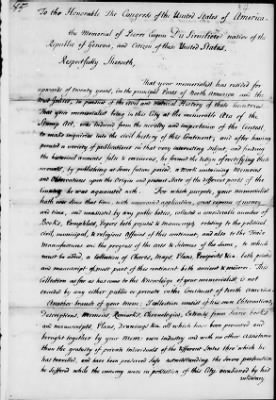 To the Honorable The Congress of the United States of America.
the Memorial of Pierre Eugene Du Simitiere native of the
Republic of Geneva, and Citizen of these United States.
Respectfully Sheweth,
That your memorialist has resided for
upwards of twenty years, in the principal Parts of North America and the
West Indies, in pursuit of the civil and Natural History of those Countries
That your memorialist being in this City at the memorable Æra of the
Stamp Act, was induced from the novelty and importance of the Contest,
to make inquiries into the civil history of this Continent, and after having
perused a variety of publications on that very interesting subject, and finding
the historical accounts false or erroneous, he formed the design of rectifying those
accounts, by publishing at some future period, a Work containing Memoirs
and Observations upon the Origin and present State of the different parts of the
Country he was acquainted with. For which purpose, your memorialist
hath ever since that time, with unwearied application, great expence of money
and time, and unassisted by any public bodies, collected a considerable number of
Books, Pamphlets, Papers both printed & manuscript, relating to the political
civil, municipal, & religious Affairs of this continent, and also to the Trade
Manufactures and the progress of the arts & sciences of the same, to which
must be added, a Collection of Charts, Maps, Plans, Prospects &ca. both printed
and manuscript of most part of this continent both ancient & modern. This
Collection as far as has come to the Knowledge of your memorialist is not
equaled by any either public or private on the Continent of North America
Another branch of your Mem: Collection consists of his own Observations,
Descriptions, Memoirs, Remarks, Chronologies, Extracts from scarce books
and manuscripts, Plans, Drawings &ca all which have been procured and
brought together by your Mem: own industry and with no other Assistance
than the gratuity of private individuals of the different States thro' which he
has travelled, and have been preserved safe notwithstanding the severe persecution
he suffered while the enemy were in possession of this City, occasioned by his